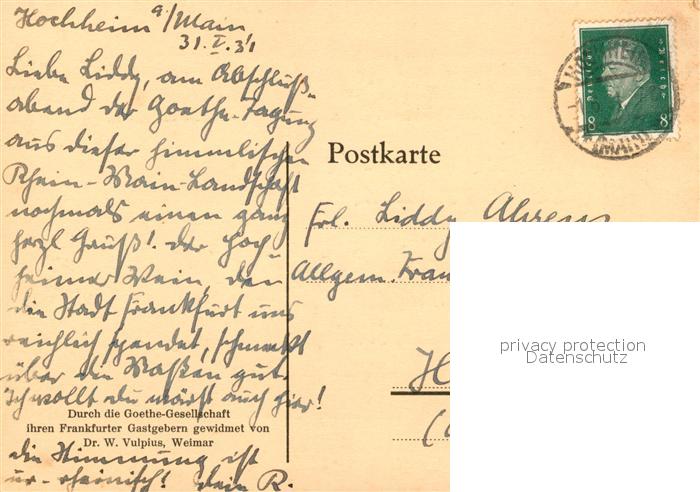 Hochheim a/Main
31.V.31
Liebe Liddy, am Abschluß-
abend der Goethe-Tagung
aus dieser himmlischen
Rhein-Main-Landschaft
nochmals einen ganz
herzl Gruß! Der Hoch-
heimer Wein, den
die Stadt Frankfurt uns
reichlich spendet, schmeckt
über die Maßen gut.
Ich wollt du wärst auch hier!
Durch die Goethe-Gesellschaft
ihren Frankfurter Gastgebern gewidmet von
Dr. W. Vulpius, Weimar
die Stimmung ist
ur-rheinisch! Dein R.
Postkarte
Frl. Liddy Ahrens
Allgem. Fran
H
Deutsches Reich
8 8
privacy protection
Datenschutz